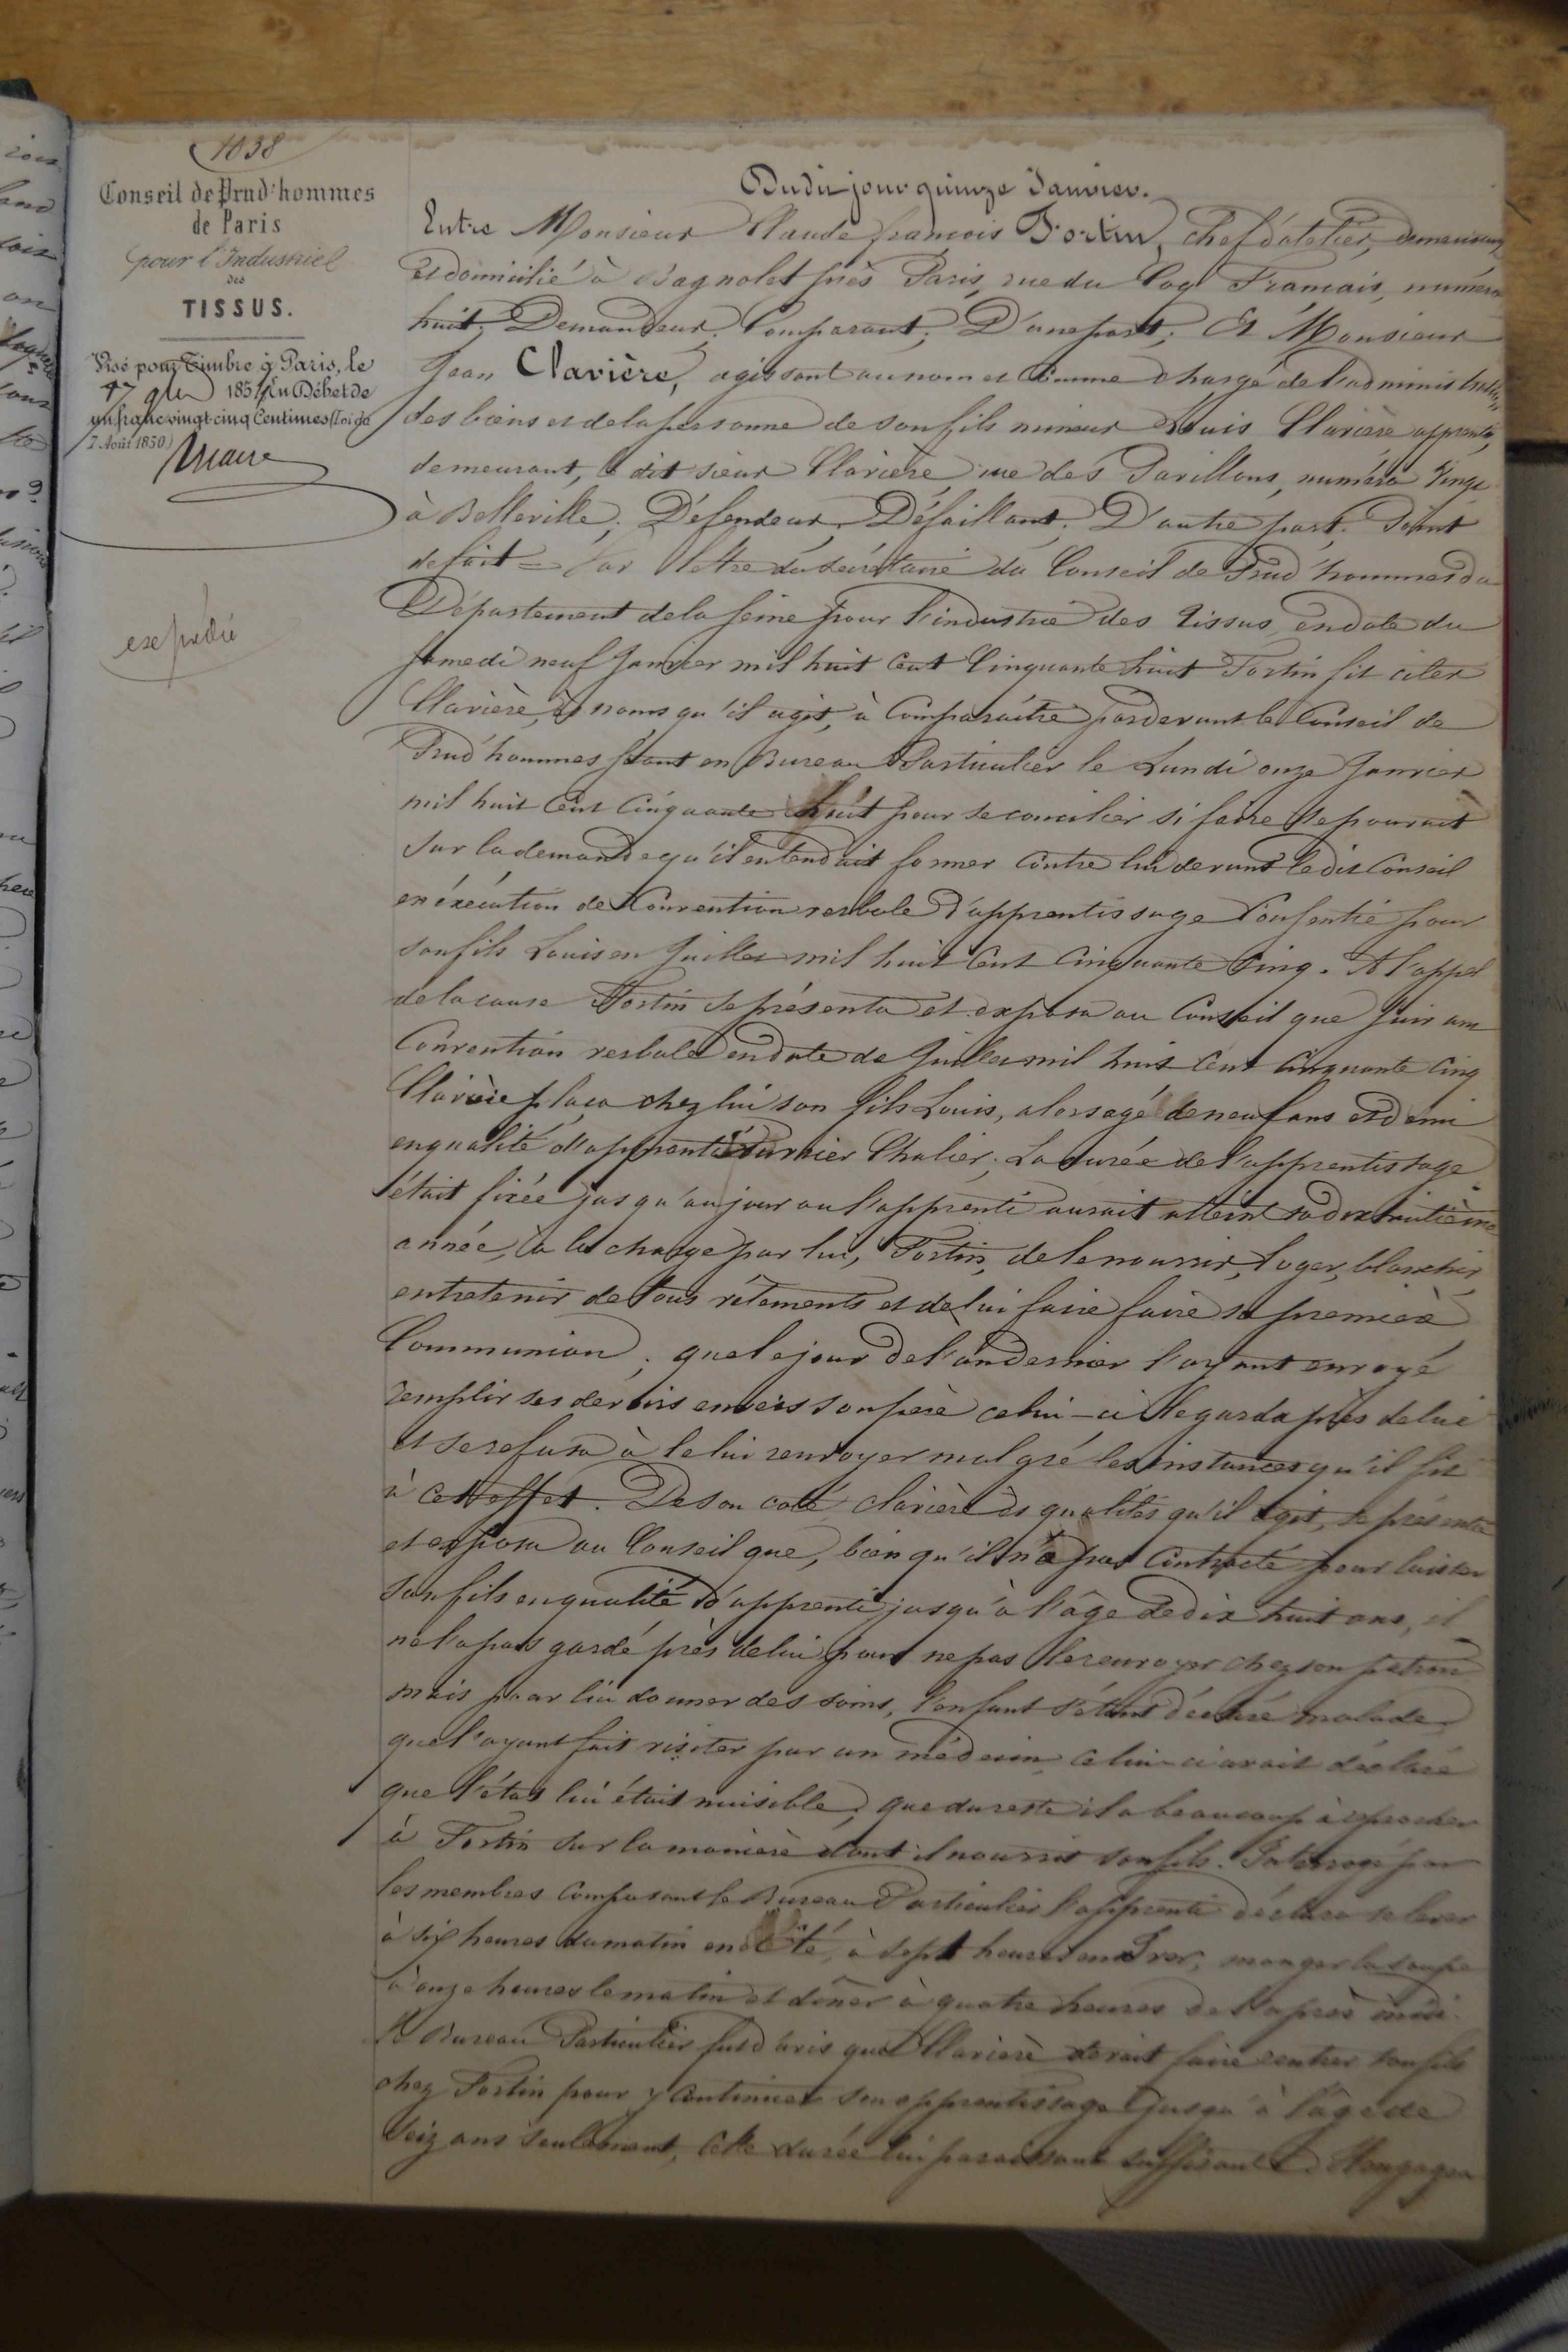 1038
Conseil de Prud'hommes
de Paris
pour l'Industriel
des
TISSUS.
Visé pour Timbre à Paris, le
185 En Débet de
un franc vingt-cinq Centimes (Loi du
7 Août 1850)
expédié
Dudit jour quinze Janvier.
Entre Monsieur Claude françois Fortin, chef d'atelier, demeurant
et domicilié à Bagnolet près Paris, rue du Coq Français, numéro
huit; Demandeur; Comparant; D'une part; Et Monsieur
Jean Clavière, agissant au nom et Comme chargé de l'administration
des biens et de la personne de son fils mineur Louis Clavière apprenti,
demeurant, le dit sieur Clavière rue des Pavillons, numéro Vingt
à Belleville; Défendeur; Défaillant; D'autre part. Point
de fait = Par lettre du secrétaire du Conseil de Prud'hommes du
Département de la Seine pour l'industrie des Tissus en date du
samedi neuf Janvier mil huit cent Cinquante huit Fortin fit citer
Clavière, ès noms qu'il agit, à Comparaître pardevant le Conseil de
Prud'hommes séant en Bureau Particulier le Lundi onze Janvier
mil huit cent cinquante huit pour se concilier si faire se pouvait
sur la demande qu'il entendait former contre lui devant le dit Conseil
en éxécution de Convention verbale d'apprentissage Consentie pour
son fils Louis en Juillet mil huit cent cinquante cinq. A l'appel
de la cause Fortin se présenta et exposa au Conseil que suivant
Convention verbale en date de Juillet mil huit cent cinquante cinq
Clavière plaça chez lui son fils Louis, alors agé de neuf ans et demi
en qualité d'apprenti ouvrier Chalier; La durée de l'apprentissage
était fixée jusqu'au jour ou l'apprenti aurait atteint sa dix huitième
année, à la charge par lui, Fortin, de le nourrir, loger, blanchir,
entretenir de tous vêtements et de lui faire faire sa première
Communion; que le jour de l'an dernier l'ayant envoyé
remplir ses devoirs envers son père celui-ci le garda près de lui
et se refusa à le lui renvoyer malgré les instances qu'il fit
à cet effet. De son coté Clavière ès qualités qu'il agit, se présenta
et exposa au Conseil que, bien qu'il n'a pas contracté pour laisser
son fils en qualité d'apprenti jusqu'à l'âge de dix huit ans, il
ne l'a pas gardé près de lui pour ne pas le renvoyer chez son patron
mais pour lui donner des soins, l'enfant s'étant déclaré malade
que l'ayant fait visiter par un médecin celui-ci avait déclaré
que l'état lui était nuisible; que du reste il a beaucoup à reprocher
à Fortin sur la manière dont il nourrit son fils. Interrogé par
les membres composant le Bureau Particulier l'apprenti déclara se lever
à six heures du matin en été, à sept heures en Iver; manger la soupe
à onze heures le matin et dîner à quatre heures de l'après midi.
Le Bureau Particulier fut d'avis que Clavière devait faire rentrer son fils
chez Fortin pour y continuer son apprentissage jusqu'à l'âge de
seize ans seulement, cette durée lui paraissant suffisante.